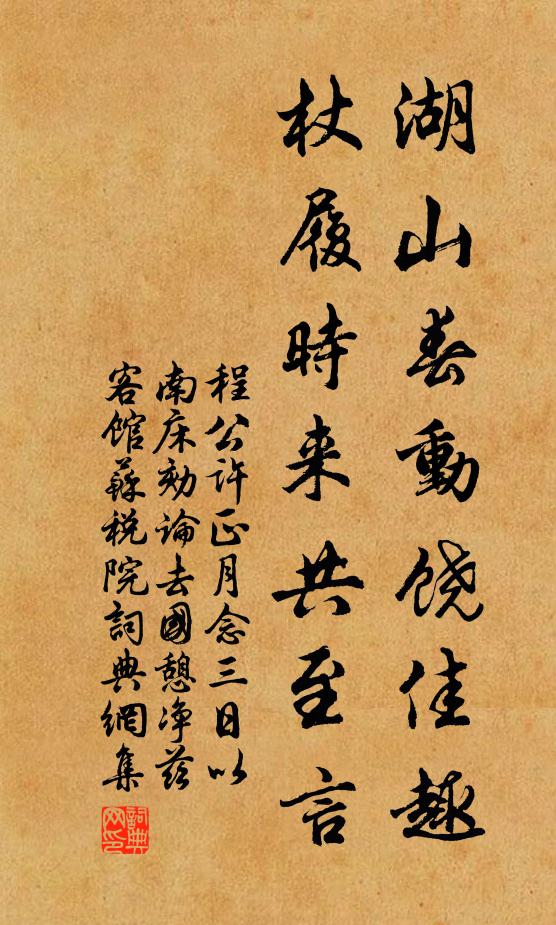 湖山春動饶佳趣
杖履時来共至言
程公许正月念三日以
南床劾論去國憩净兹
客馆蘇税院詞典網集
詞典网印